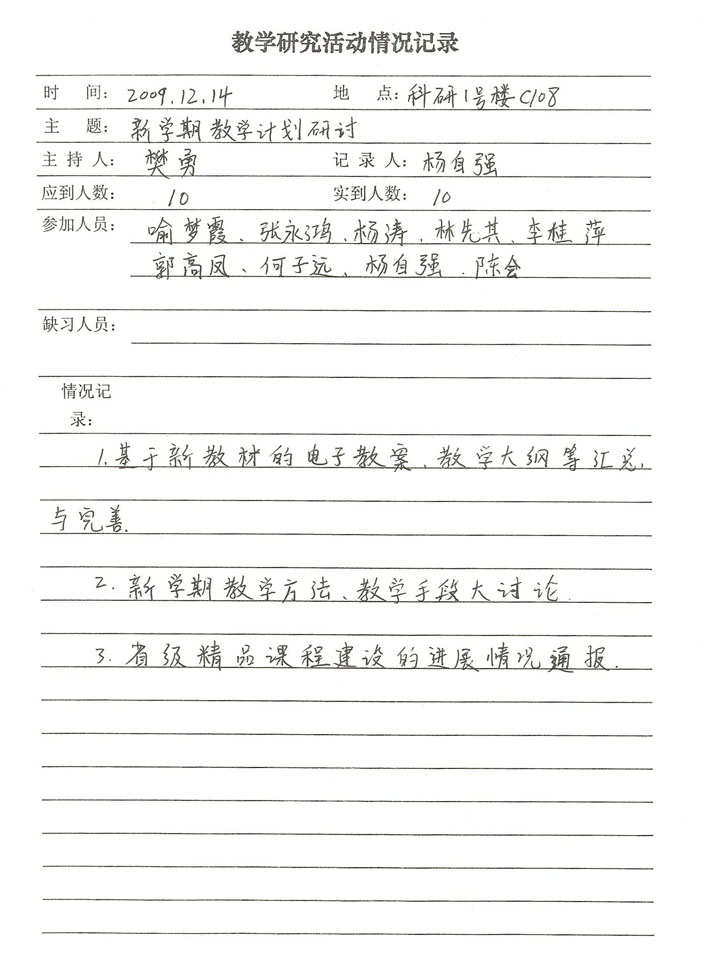 教学研究活动情况记录
时 间：2009.12.14 地 点：科研1号楼C108
主 题：新学期教学计划研讨
主 持 人：樊勇 记 录 人：杨自强
应到人数：10 实到人数：10
参加人员：喻梦霞、张永鸿、杨涛、林先其、李桂萍
郭高凤、何子远、杨自强、陈会
缺习人员：
情况记
录：
1.基于新教材的电子教案、教学大纲等汇总，
与完善.
2.新学期教学方法、教学手段大讨论.
3.省级精品课程建设的进展情况通报.